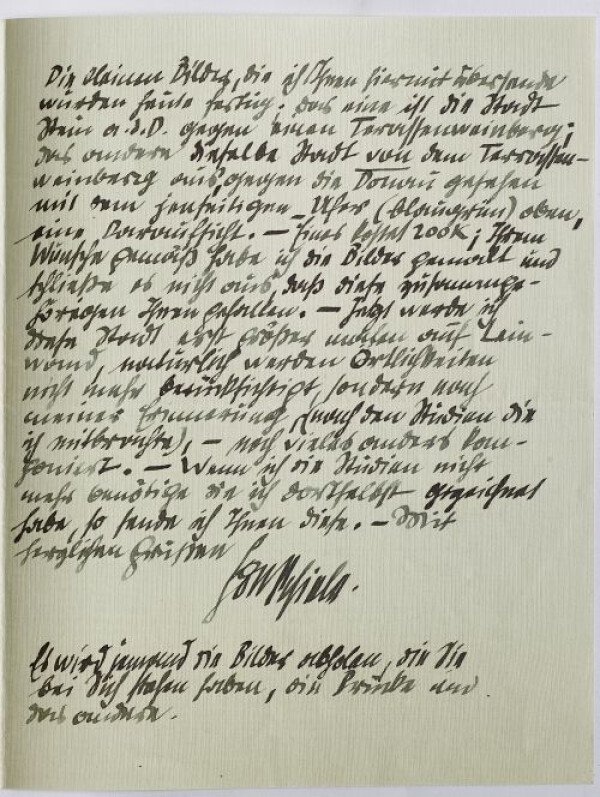 Die kleinen Bilder, die ich Ihnen hiermit übersende
wurden heute fertig; das eine ist die Stadt
Stein a.d.D. gegen einen Terassenweinberg;
das andere dieselbe Stadt von dem Terrassen-
weinberg aus, gegen die Donau gesehen
mit dem jenseitigen Ufer (blaugrün) oben,
eine Daraufsicht. — Eines kostet 200K; Ihrem
Wunsche gemäß habe ich die Bilder gemalt und
schließe es nicht aus, daß diese zusammenge-
hörigen Ihnen gefallen. — Jetzt werde ich
diese Stadt erst größer malen auf Lein-
wand, natürlich werden Örtlichkeiten
nicht mehr berücksichtigt, sondern nach
meiner Erinnerung, (nach den Studien die
ich mitbrachte), — noch vieles anders kom-
poniert. — Wenn ich die Studien nicht
mehr benötige die ich dortselbst gezeichnet
habe, so sende ich Ihnen diese. — Mit
herzlichen Grüßen
Egon Schiele.
Es wird jemand die Bilder abholen, die Sie
bei Sich stehen haben, die Brücke und
das andere.